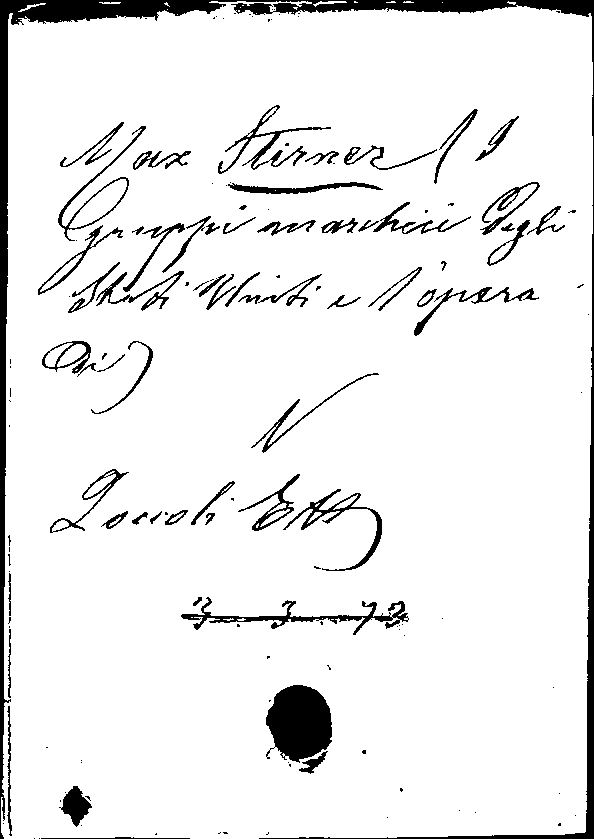 Max Stirner (I
gruppi anarchici degli
Stati Uniti e l'opera
di)
V
Zoccoli Ett)
3 3 73